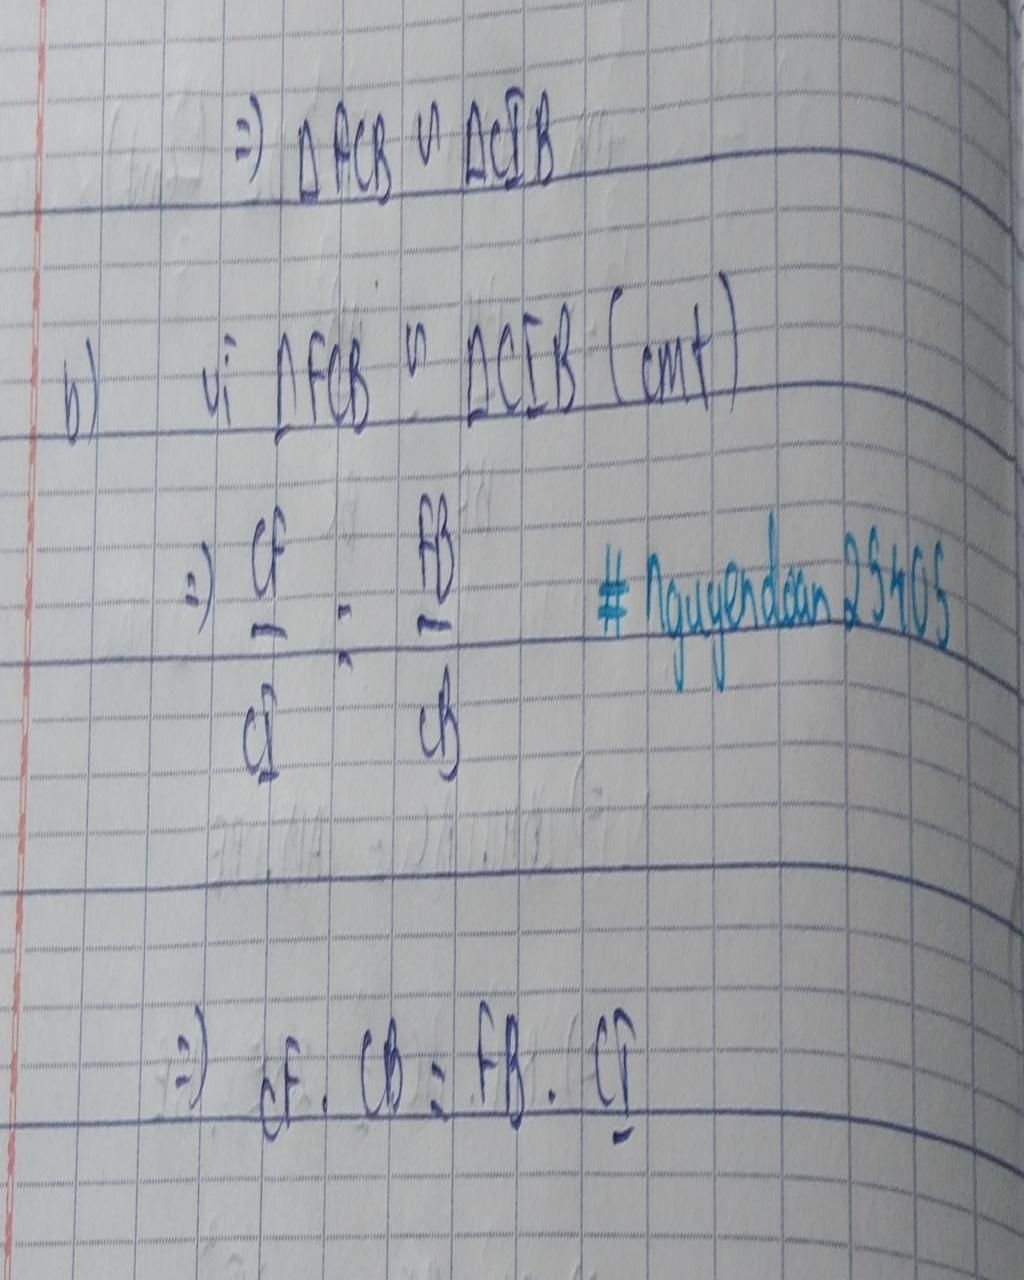 =) Δ FCB ∽ ΔCIB
b) vì ΔFCB ∽ ΔCIB (cmt)
=) CF/CI = FB/CB
#nguyendoan25405
=) CF . CB = FB . CI